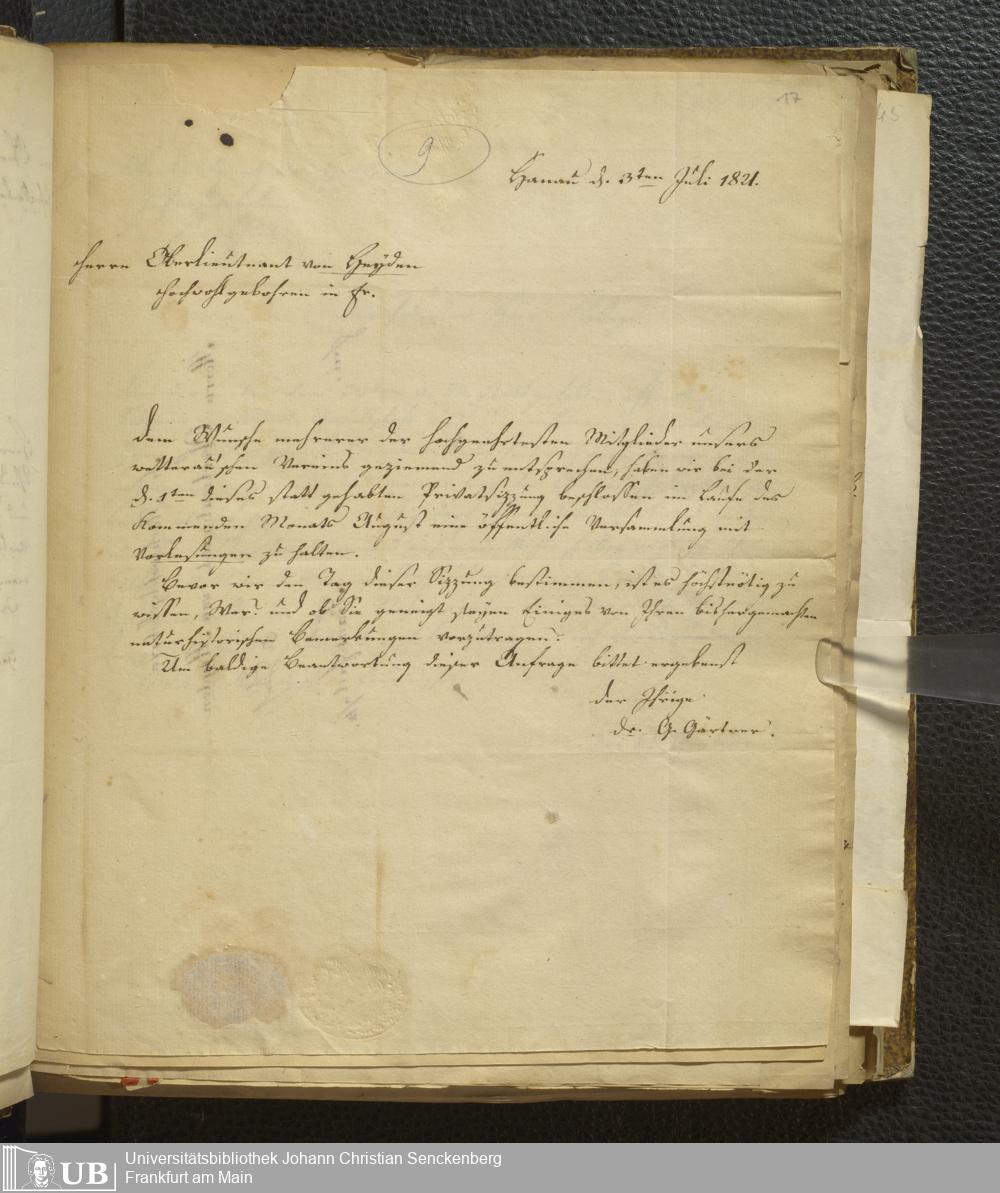 17
45
9
Hanau d. 3ten Juli 1821.
Herrn Oberlieutnant von Heyden
Hochwohlgebohren in Fr.
Dem Wunsche mehrerer der hochgeehrtesten Mitglieder unsers
wetterau'schen Vereins geziemend zu entsprechen, haben wir bei der
d. 1ten dieses statt gehabten Privatsizzung beschlossen im Laufe des
kommenden Monats August eine öffentliche Versammlung mit
Vorlesungen zu halten.
Bevor wir den Tag dieser Sizzung bestimmen, ist es höchstnötig zu
wissen, Wer? und ob Sie geneigt seyen Einiges von Ihren bisher gemachten
naturhistorischen Bemerkungen vorzutragen?
Um baldige Beantwortung dieser Anfrage bittet ergebenst
der Ihrige
Dr. G. Gärtner.
UB
Universitätsbibliothek Johann Christian Senckenberg
Frankfurt am Main